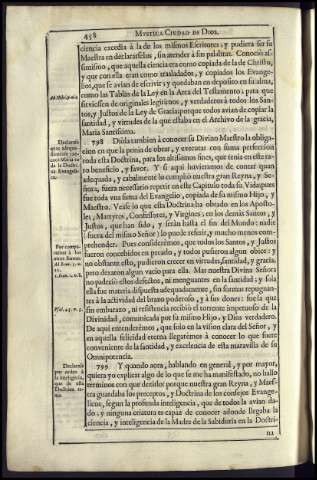 458 MYSTICA CIUDAD DE DIOS.
ciencia excedia à la de los mismos Escritores; y pudiera ser su
Maestra en declararselas, sin atender à su santidad. Conociò as-
simismo, que aquella ciencia era como copiada de la de Christo,
y que con ella eran como trasladados, y copiados los Evange-
lios, que se avian de escrivir; y quedaban en deposito en su alma,
como las Tablas de la Ley en la Arca del Testamento, para que
sirviessen de originales legitimos, y verdaderos à todos los San-
tos, y Justos de la Ley de Gracia; porque todos avian de copiar la
santidad, y virtudes de la que estaba en el Archivo de la gracia,
Maria Santissima.
798 Diòla tambien à conocer su Divino Maestro la obliga-
cion en que la ponia de obrar, y executar con suma perfeccion
toda esta Doctrina, para los altissimos fines, que tenia en este ra-
ro beneficio, y favor. Y si aqui huvieramos de contar quan
adequada, y cabalmente lo cumpliò nuestra gran Reyna, y Se-
ñora, fuera necessario repetir en este Capitulo toda su Vida; pues
fue toda vna suma del Evangelio, copiada de su mismo Hijo, y
Maestro. Vease lo que esta Doctrina ha obrado en los Aposto-
les, Martyres, Confessores, y Virgines; en los demàs Santos, y
Justos, que han sido, y seràn hasta el fin del Mundo: nadie
(fuera del mismo Señor) lo puede referir, y mucho menos com-
prehender. Pues consideremos, que todos los Santos, y Justos
fueron concebidos en pecado, y todos pusieron algun obice: y
no obstante esto, pudieron crecer en virtudes, santidad, y gracia;
pero dexaron algun vacio para ella. Mas nuestra Divina Señora
no padeciò estos defectos, ni menguantes en la santidad; y sola
ella fue materia dispuesta adequadamente, sin formas repugnan-
tes à la actividad del brazo poderoso, y à sus dones: fue la que
sin embarazo, ni resistencia recibiò el torrente impetuoso de la
Divinidad, comunicada por su mismo Hijo, y Dios verdadero.
De aqui entenderèmos, que solo en la vision clara del Señor, y
en aquella felicidad eterna llegarèmos à conocer lo que fuere
conveniente de la santidad, y excelencia de esta maravilla de su
Omnipotencia.
799 Y quando aora, hablando en general, y por mayor,
quiera yo explicar algo de lo que se me ha manifestado, no hallo
terminos con que dezirlo: porque nuestra gran Reyna, y Maes-
tra guardaba los preceptos, y Doctrina de los consejos Evange-
licos, segun la profunda inteligencia, que de todos la avian da-
do; y ninguna criatura es capaz de conocer adonde llegaba la
ciencia, y inteligencia de la Madre de la Sabiduria en la Doctri-
na